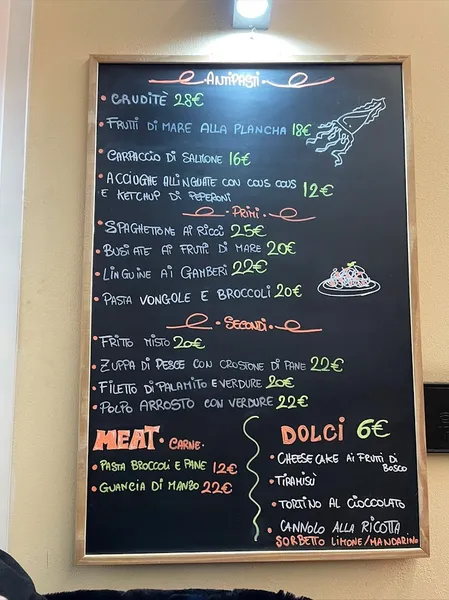 ANTIPASTI
• CRUDITÈ 28€
• FRUTTI DI MARE ALLA PLANCHA 18€
• CARPACCIO DI SALMONE 16€
• ACCIUGHE ALLINGUATE CON COUS COUS
E KETCHUP DI PEPERONI 12€
• PRIMI •
• SPAGHETTONE AI RICCI 25€
• BUSIATE AI FRUTTI DI MARE 20€
• LINGUINE AI GAMBERI 22€
• PASTA VONGOLE E BROCCOLI 20€
• SECONDI •
• FRITTO MISTO 20€
• ZUPPA DI PESCE CON CROSTONE DI PANE 22€
• FILETTO DI PALAMITO E VERDURE 20€
• POLPO ARROSTO CON VERDURE 22€
MEAT • CARNE •
• PASTA BROCCOLI E PANE 12€
• GUANCIA DI MANZO 22€
DOLCI 6€
• CHEESE CAKE AI FRUTTI DI
BOSCO
• TIRAMISÙ
• TORTINO AL CIOCCOLATO
• CANNOLO ALLA RICOTTA
SORBETTO LIMONE/MANDARINO